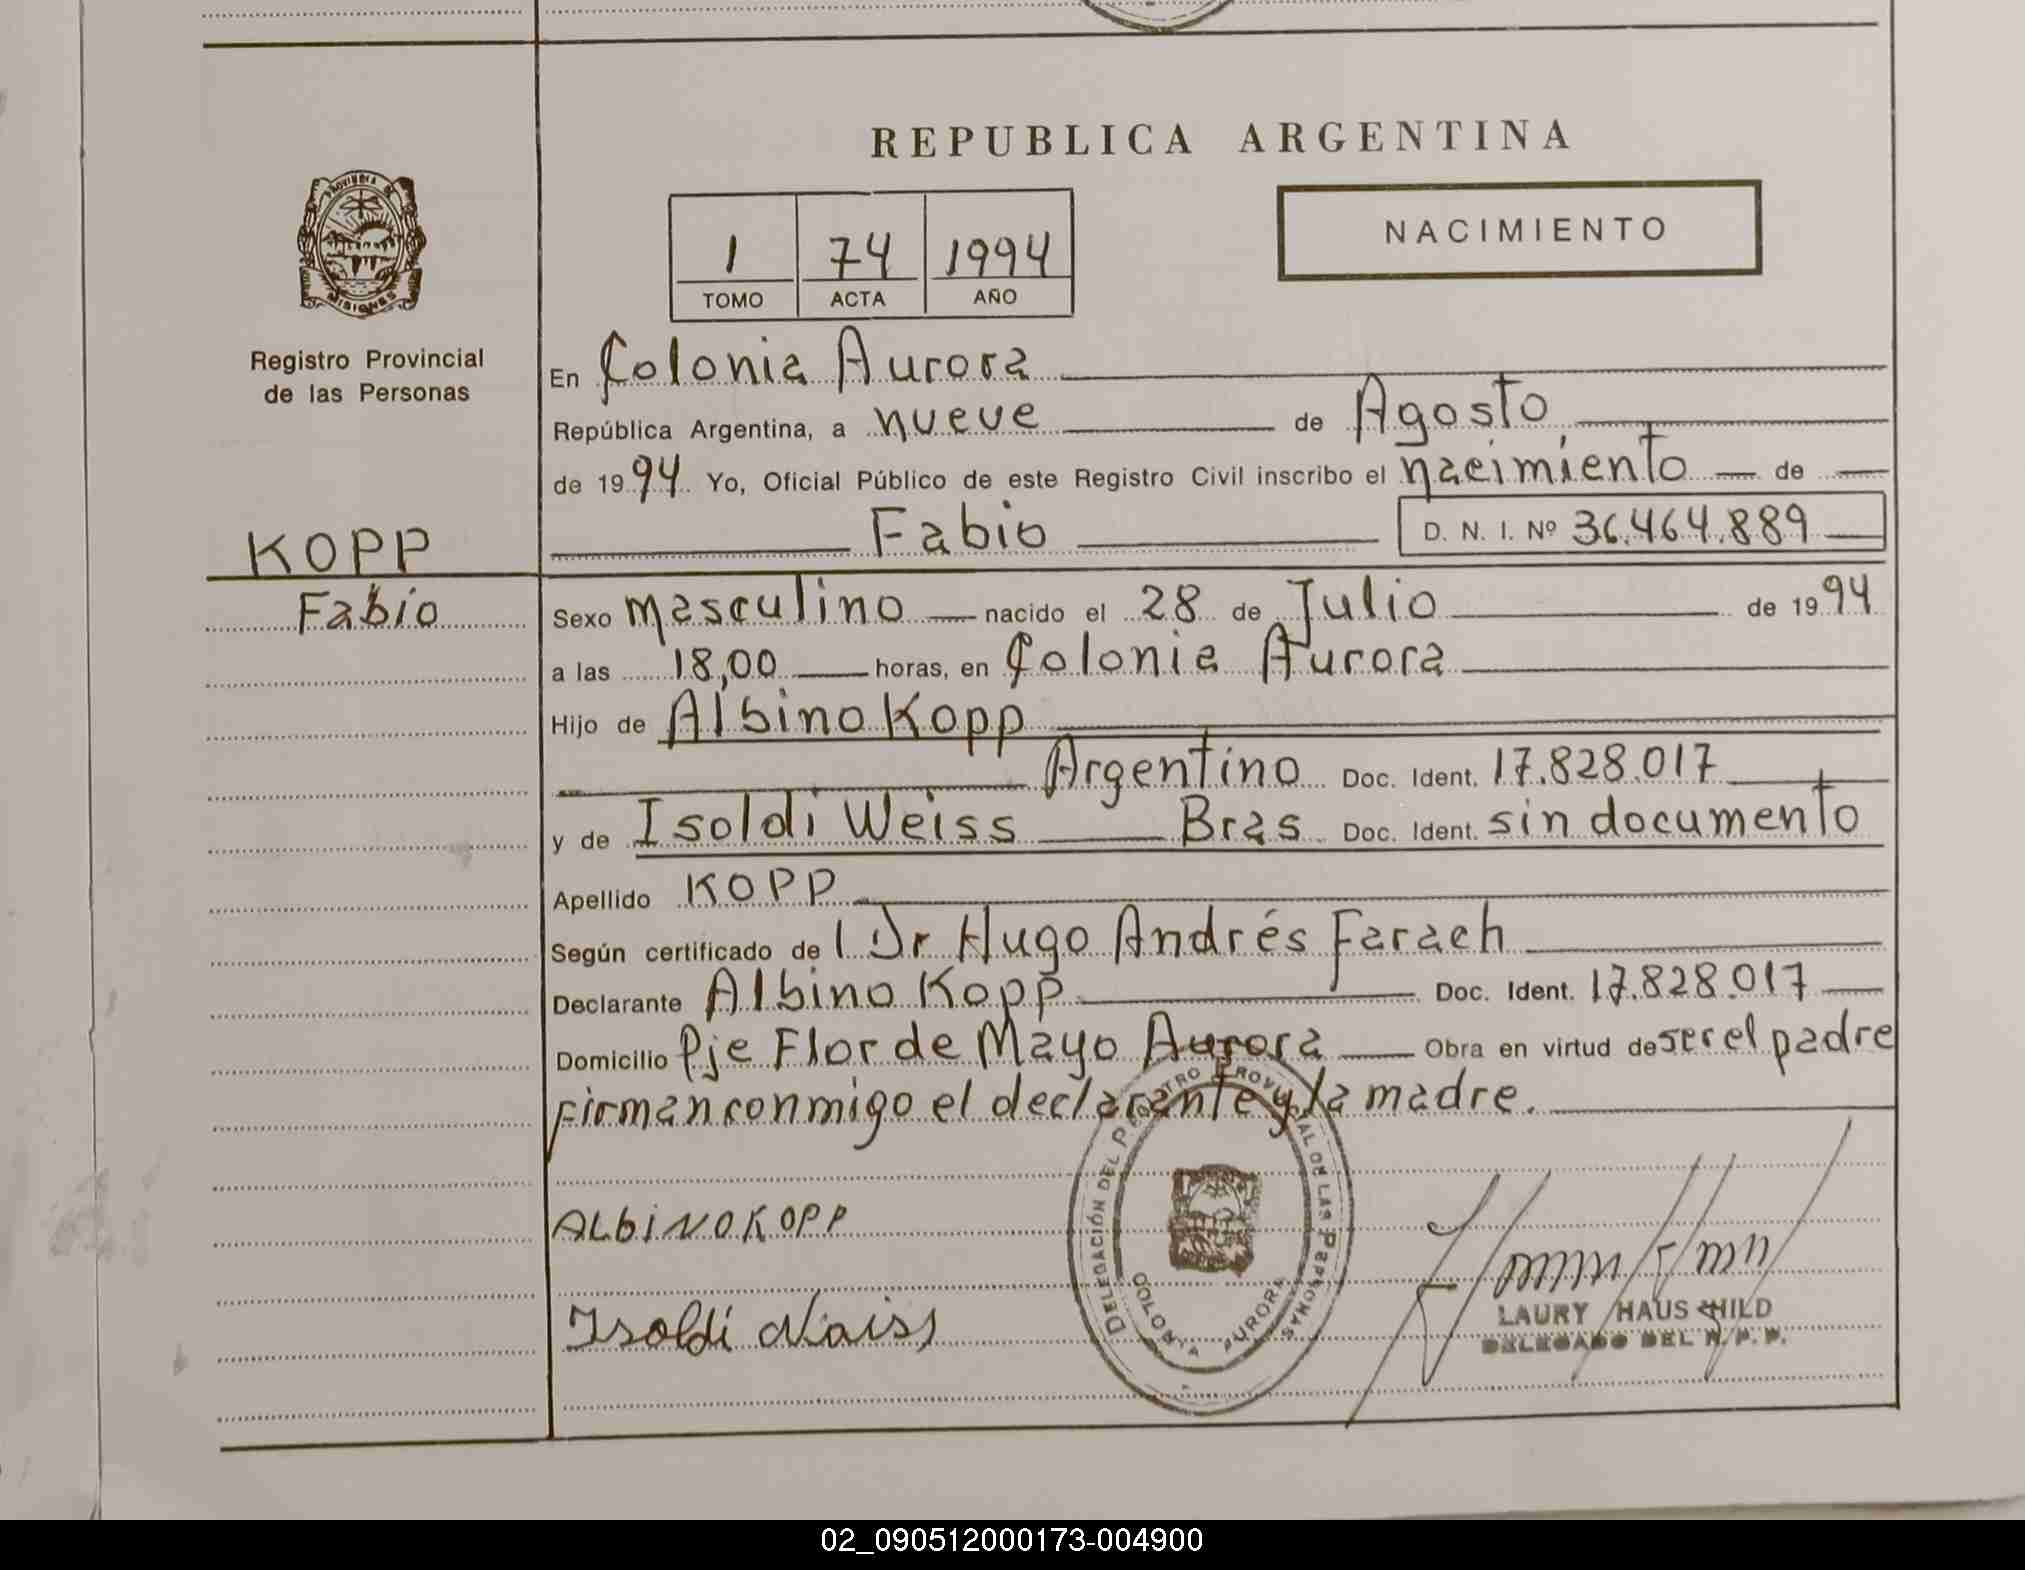 REPUBLICA ARGENTINA
PROVINCIA DE
MISIONES
Registro Provincial
de las Personas
1 74 1994
TOMO ACTA AÑO
NACIMIENTO
En Colonia Aurora
República Argentina, a nueve de Agosto
de 1994 Yo, Oficial Público de este Registro Civil inscribo el nacimiento de
KOPP
Fabio D. N. I. Nº 36.464.889
Fabio
Sexo Masculino nacido el 28 de Julio de 1994
a las 18,00 horas, en Colonia Aurora
Hijo de Albino Kopp
Argentino Doc. Ident. 17.828.017
y de Isoldi Weiss Bras Doc. Ident. sin documento
Apellido KOPP
Según certificado de Dr Hugo Andrés Farach
Declarante Albino Kopp Doc. Ident. 17.828.017
Domicilio Pje Flor de Mayo Aurora Obra en virtud de ser el padre
Firman conmigo el declarante y la madre.
ALbiNO KOPP
DELEGACIÓN DEL REGISTRO PROVINCIAL DE LAS PERSONAS
COLONIA AURORA
Isoldi Waiss
LAURY HAUSCHILD
DELEGADO DEL R. P. P.
02_090512000173-004900